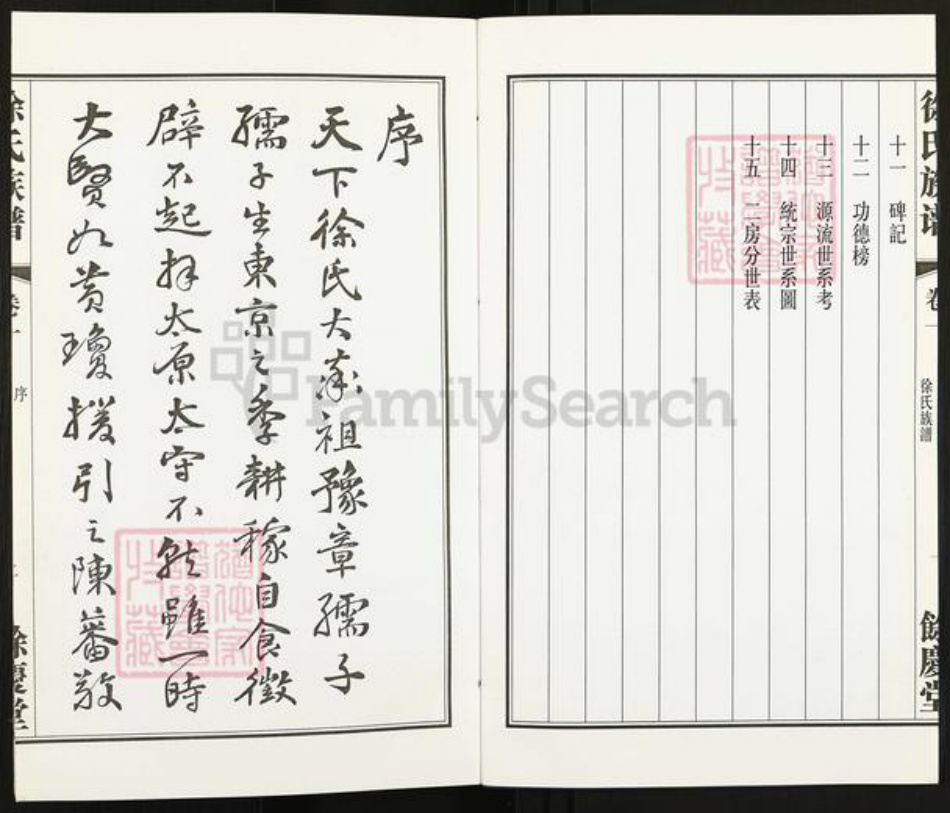 徐氏族譜
卷一
徐氏族譜
餘慶堂
十一 碑記
十二 功德榜
十三 源流世系考
十四 統宗世系圖
十五 二房分世表
序
天下徐氏大率祖豫章孺子
孺子生東京之季耕稼自食徵
辟不起拜太原太守不就雖一時
大賢如黃瓊援引之陳蕃敬
徐氏族譜
卷一
序
餘慶堂
FamilySearch